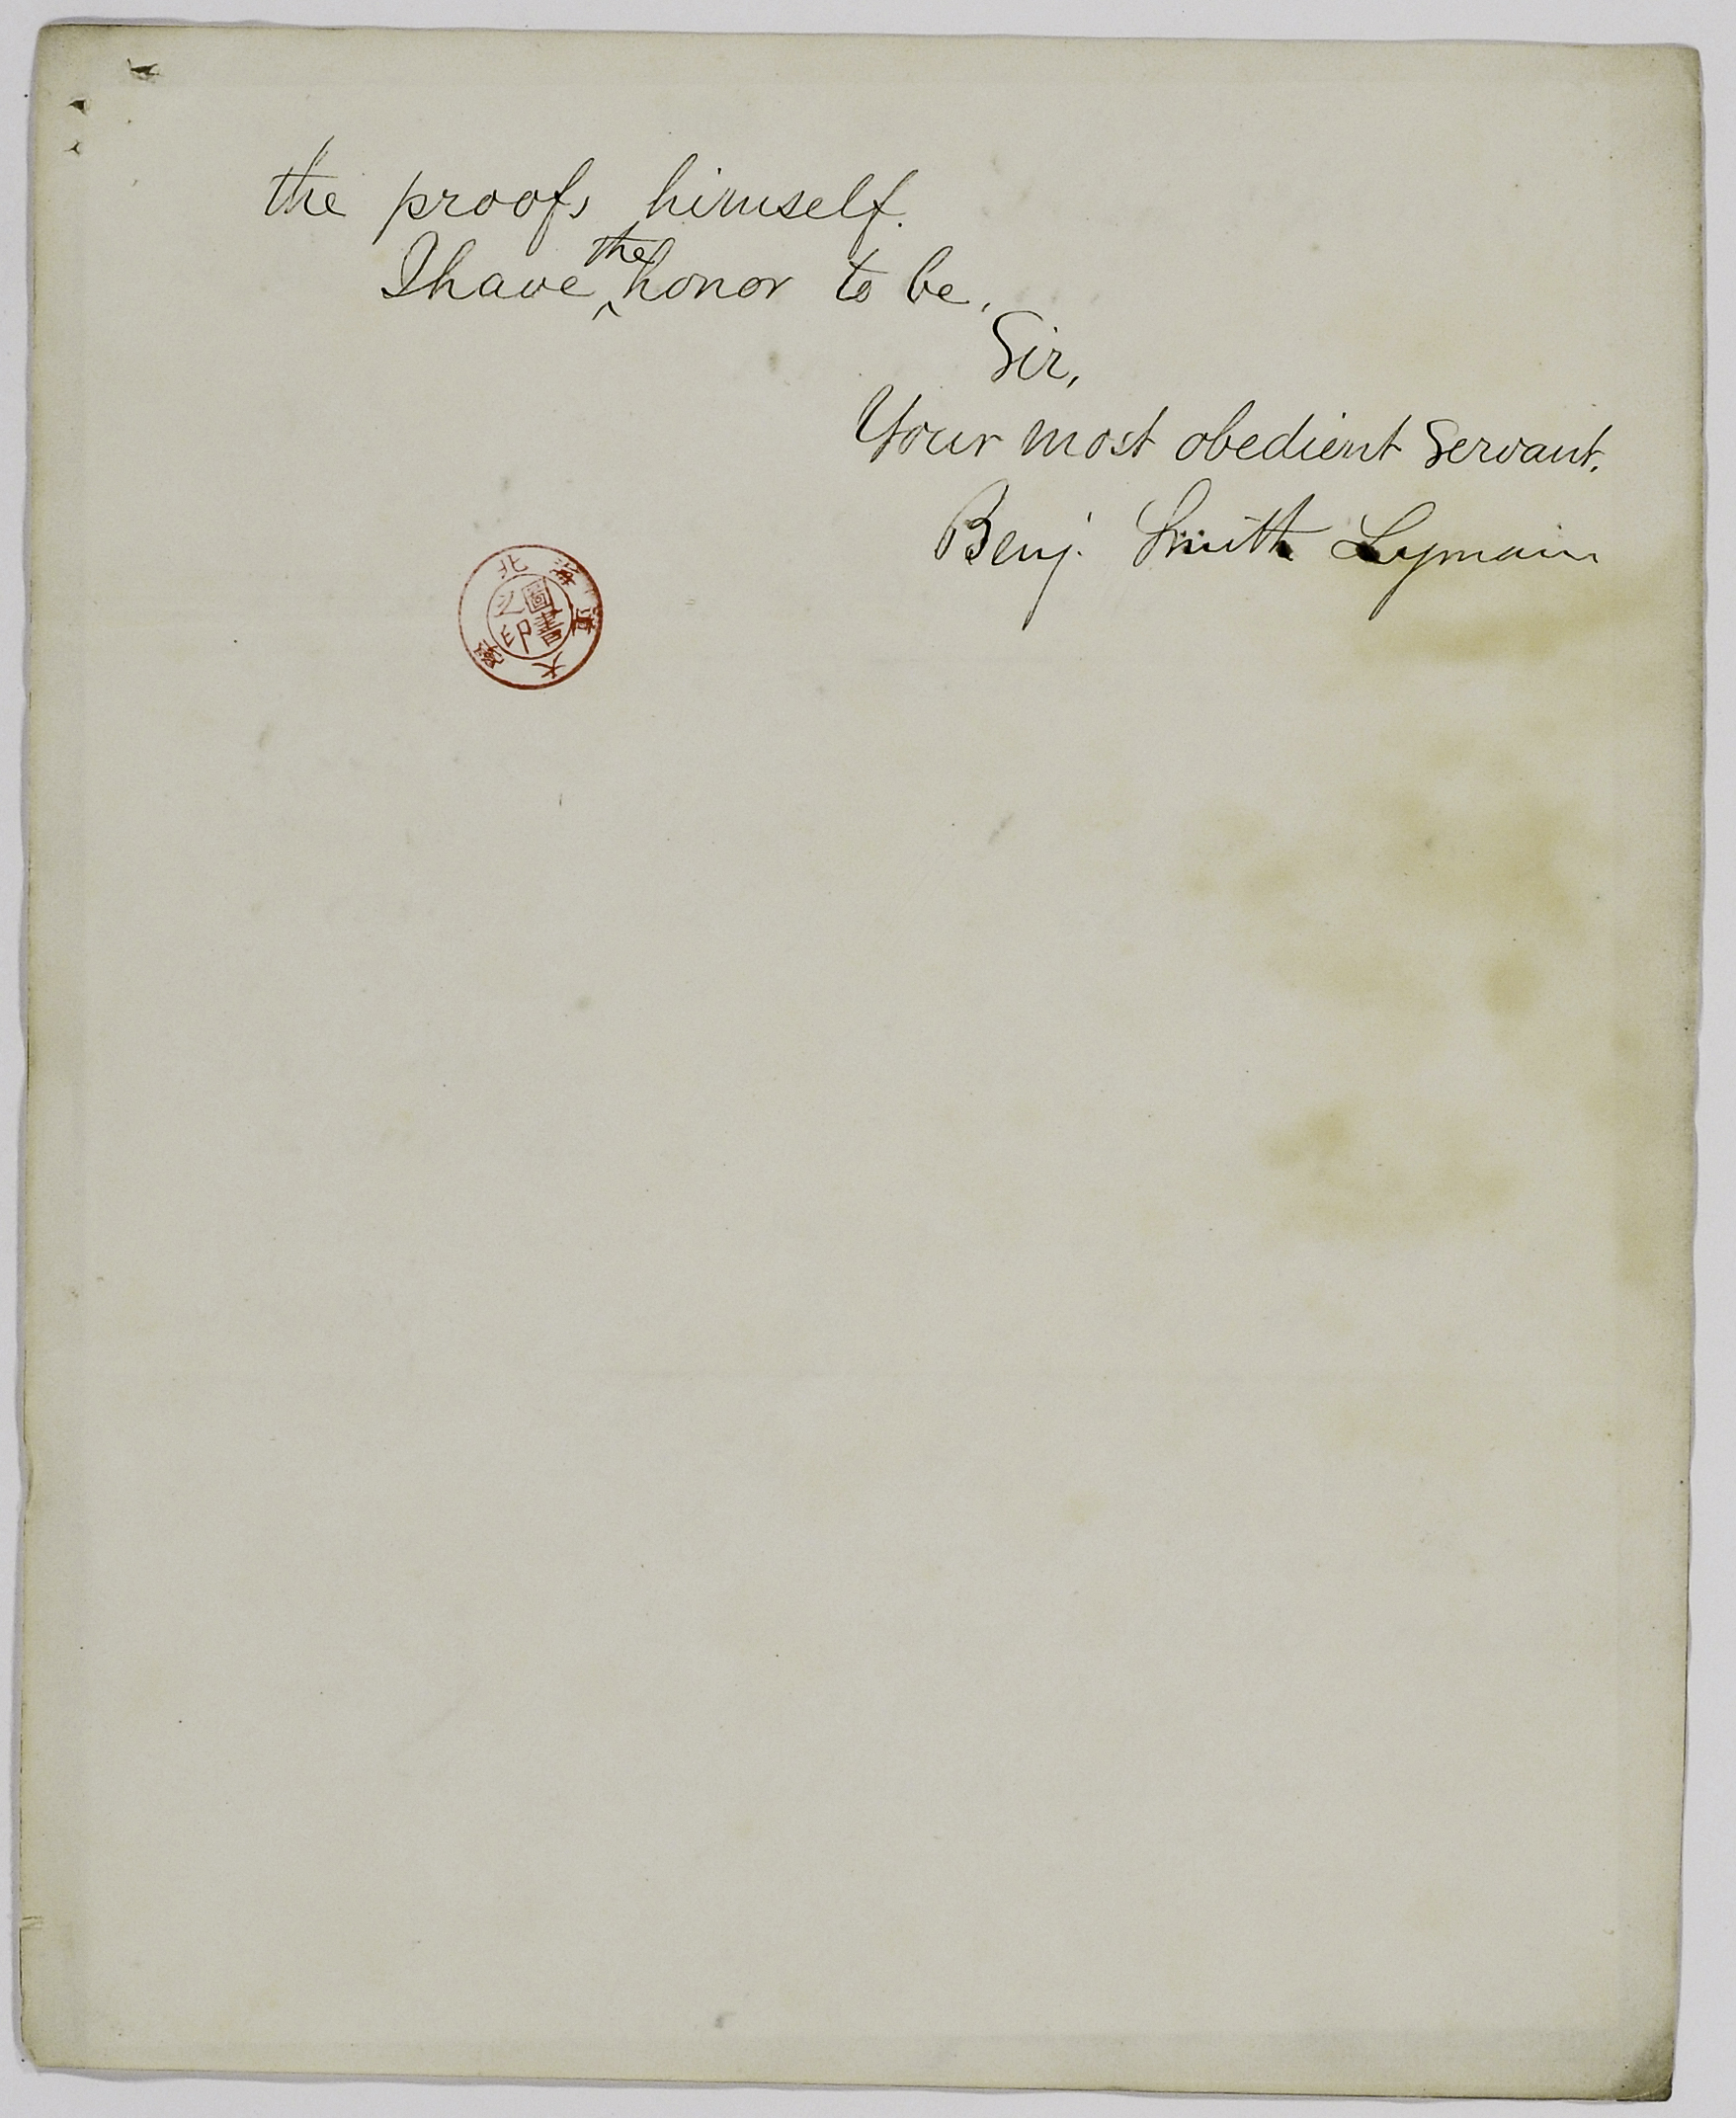 the proofs himself.
I have the honor to be,
Sir,
Your most obedient servant,
Benj. Smith Lyman
北海道大學
圖書之印